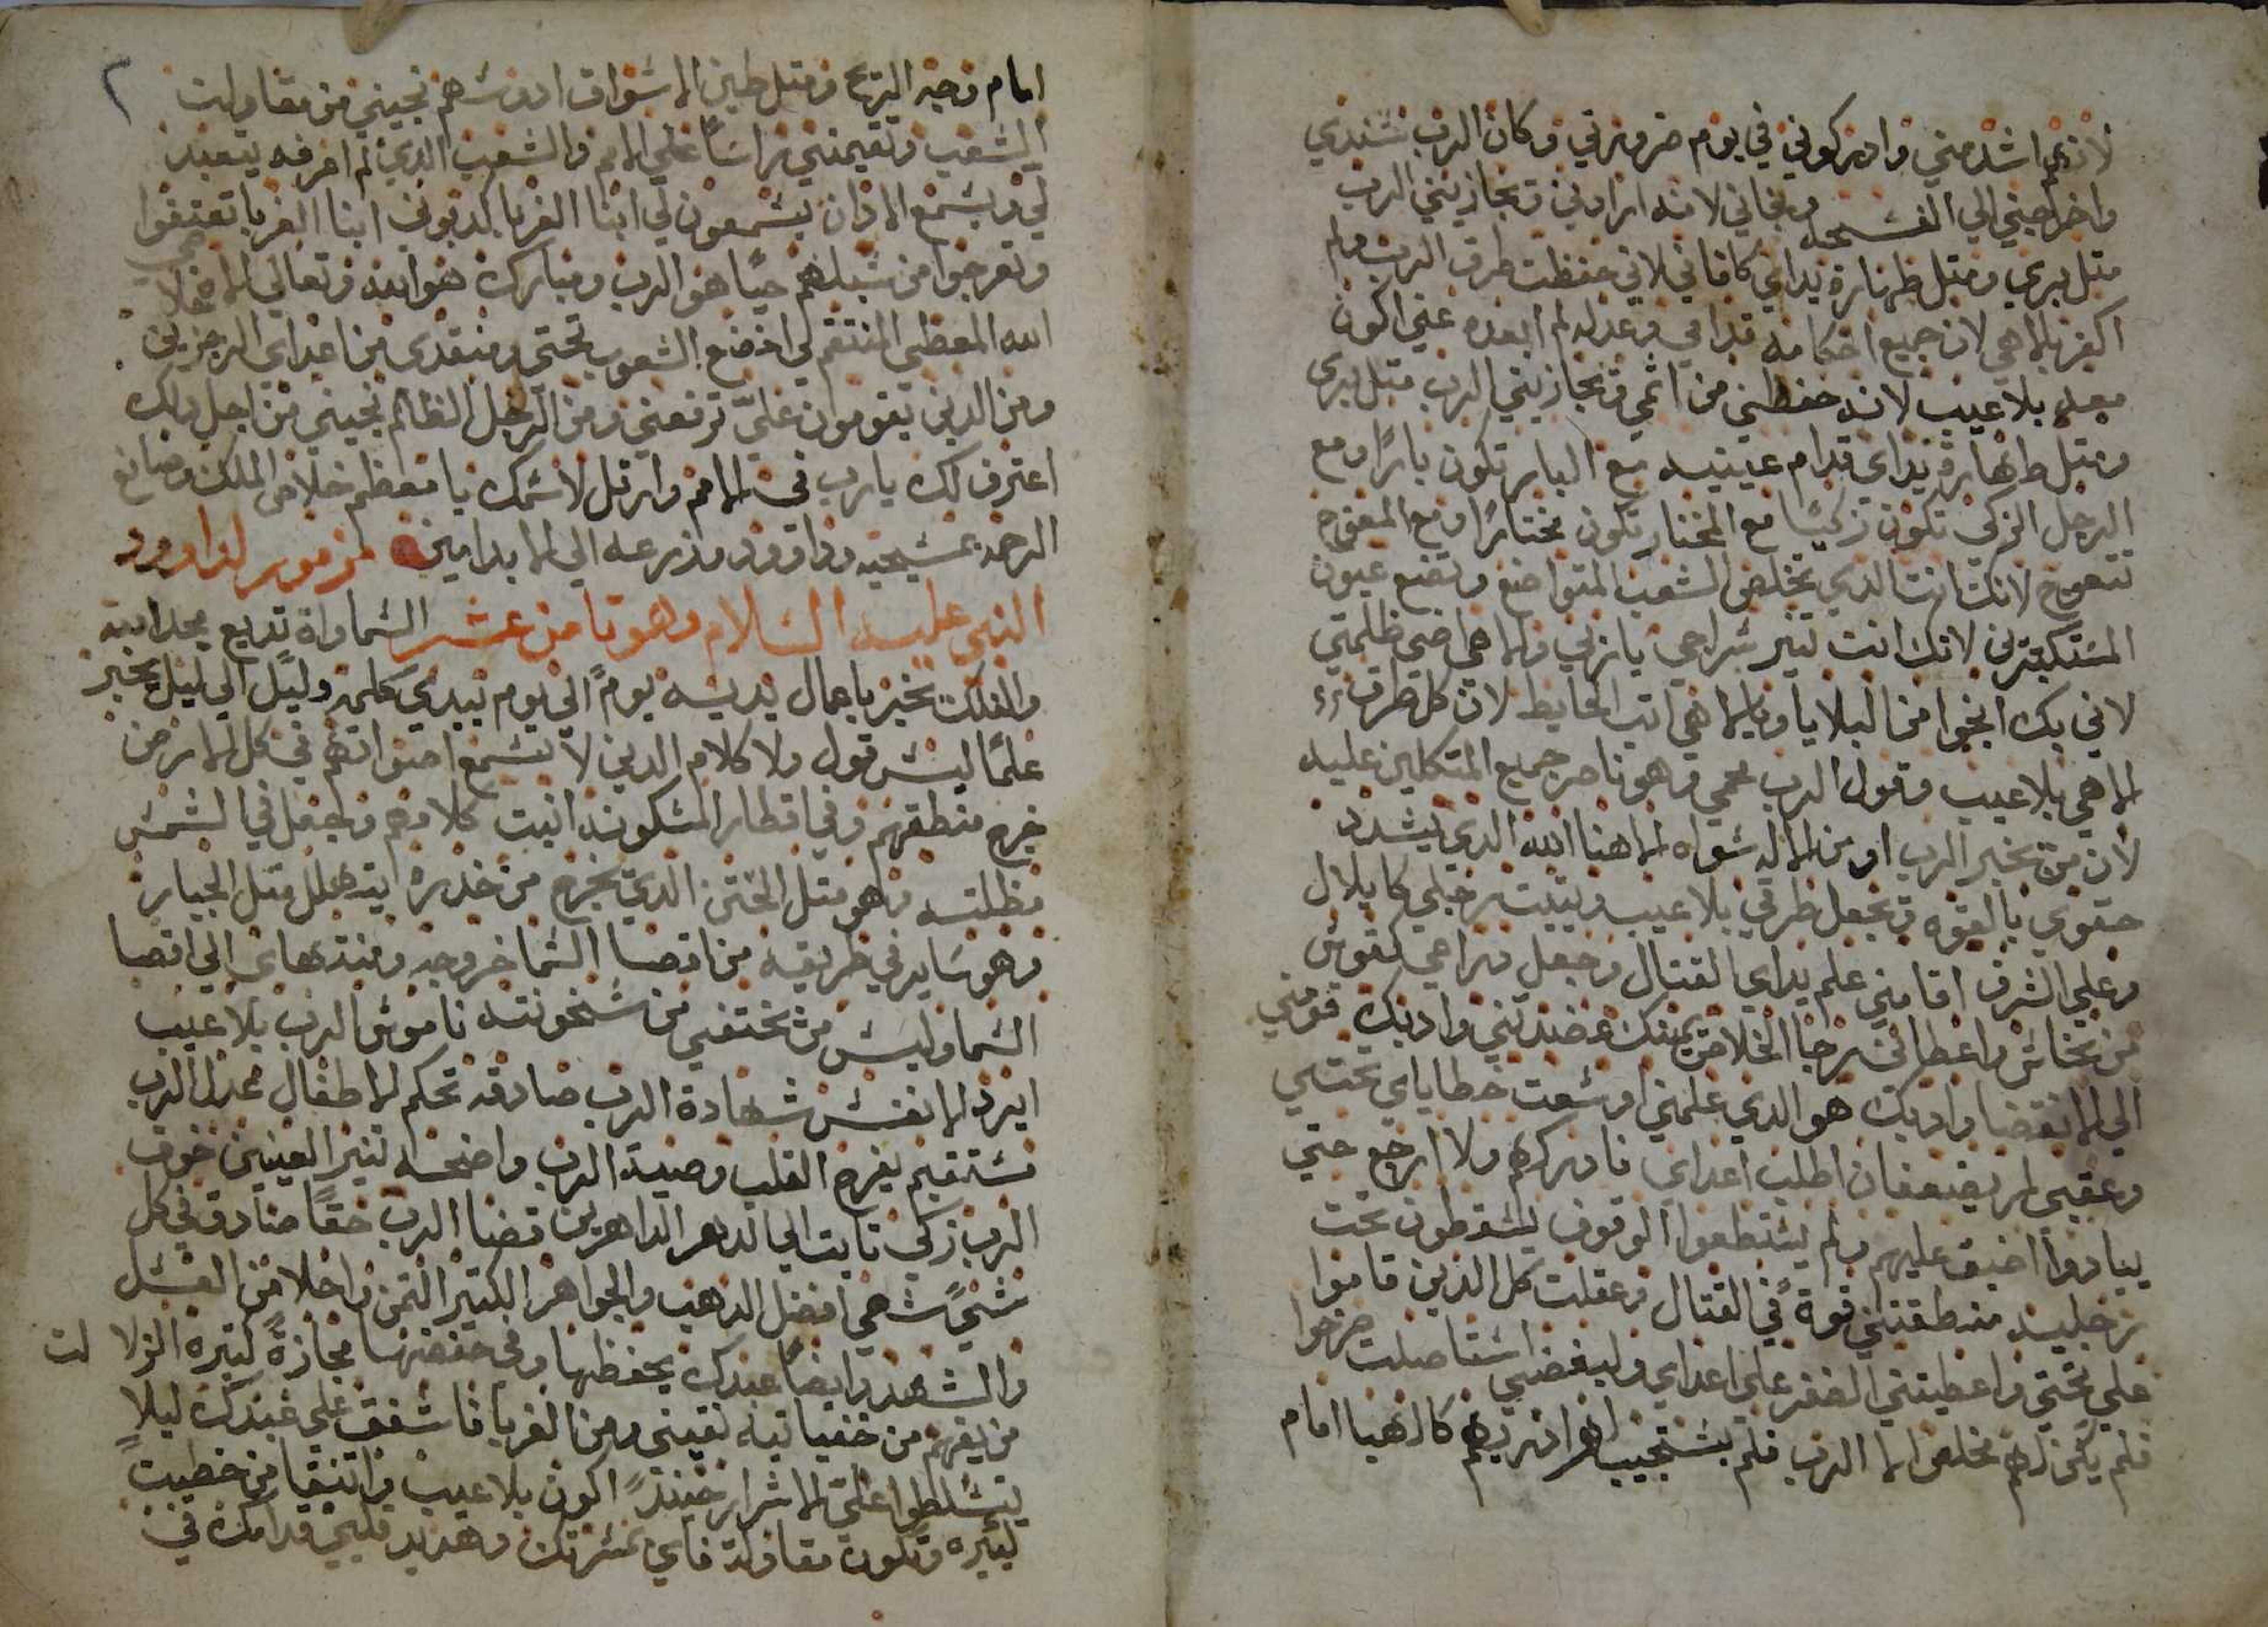 لانهم اشد مني وادركوني في يوم ضرورتي وكان الرب سندي
واخرجني الي الفسحه ونجاني لانه ارادني وتجازيني الرب
متل بري ومتل طهارة يداي كافاني لاني حفظت طرق الرب ولم
اكفر بالاهي لان جميع احكامه قدامي وعدله لم ابعده عني اكون
معه بلا عيب لانه حفظني من اثمي وتجازيني الرب متل بري
ومتل طهارة يداي قدام عينيه مع البار تكون بارًا ومع
الرجل الزكي تكون زكيًا مع المختار تكون مختارًا ومع المعوج
تتعوج لانك انت الدي تخلص الشعب المتواضع وتضع عيون
المستكبرين لانك انت تنير سراجي يا ربي والاهي اضي ظلمتي
لاني بك انجوا من البلايا وبالاهي اتب الحايط لان كل طرق
الاهي بلا عيب وقول الرب محمي وهو ناصر جميع المتكلين عليه
لان من تخير الرب او من الاله سواه الاهنا الله الدي يشدد
حقوي بالقوه وتجعل طرقي بلا عيب ويتبت رجلي كا يلال
وعلي الشرف اقامني علم يداي القتال وجعل دراعي كقوس
من نحاس واعطاني رجا الخلاص يمينك عضدتني وادبك قومني
الي الانقضا وادبك هو الدي علمني اوسعت خطاياي تحتي
وعقبي لم يضعفان اطلب اعداي فادركهم ولا ارجع حتي
يبادوا اضيق عليهم ولم يستطعوا الوقوف يسقطون تحت
رجليه منطقتني قوةً في القتال وعقلت كل الذين قاموا
علي تحتي واعطيتني الظفر علي اعداي ولبغضي استاصلت صرخوا
فلم يكن لهم مخلص الا الرب فلم يستجيب لهم ادريهم كالهبا امام
امام وجه الريح ومتل طين الاسواق ادوسهم نجيني من مقاولت
الشعب وتقيمني راسًا علي الامم والشعب الذي لم اعرفه يتعبد
لي وبسمع الادان يسمعون لي ابنا الغربا كدبوني ابنا الغربا تعتقوا
وتعرجوا من سبلهم حيًا هو الرب ومبارك هو الله وتعالي الاه خلاصي
الله المعطي المنتقم لي اخضع الشعوب تحتي ومنقدي من اعداي الرجزيين
ومن الدين يقومون عليّ ترفعني ومن الرجل الظالم نجيني من اجل دلك
اعترف لك يارب في الامم وارتل لاسمك يا معظم خلاص الملك وصانع
الرحمه بمسيحه وداوود وذرعه الي الابد امين مزمور لداوود
النبي عليه السلام وهو تامن عشر السماواة تديع مجد الله
والفلك تخبر باعمال يديه يومً الي يوم يبدي كلمه وليل الي ليل تخبر
علمًا ليس قول ولا كلام الدين لا تسمع اصواتهم في كل الارض
خرج منطقهم وفي اقطار المسكونه انبت كلامهم وجعل في الشمس
مظلته وهو متل الختن الدي تخرج من خدره ايتهلل متل الجبار
وهو ساير في طريقه من اقصا السما خروجه ومنتهاى الي اقصا
السما وليس من تختفي من سخونته ناموس الرب بلا عيب
ايرد الانفس شهادة الرب صادقه تحكم الاطفال عدل الرب
مستقيم يفرح القلب وصية الرب واضحه تنير العينين خوف
الرب زكي تابت الي الدهر الداهرين قضا الرب حقًا صادق في كل
شيً شهي افضل الدهب والجواهر الكتير التمن واحلا من العسل
والشهد وايضًا عبدك يحفظها وفي حفضها مجازةً كتيره الزلا لت
من يفهم من خفياتيه نقيني ومن الغربا فاشفق علي عبدك ليلًا
يتسلطوا علي الاشرار حينذً اكون بلا عيب واتنقا من خطيت
كتيره وتكون مقاولة فاي بمسرتك وهديد قلبي قدامك في